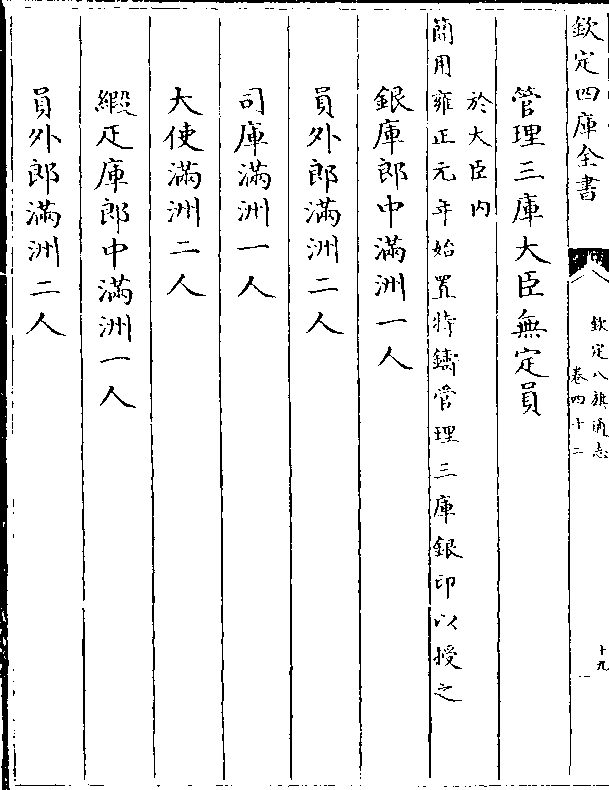 欽定四庫全書
欽定八旗通志
卷四十二
十九
管理三庫大臣無定員
於大臣內
簡用雍正元年始置特鑄管理三庫銀印以授之
銀庫郎中滿洲一人
員外郎滿洲二人
司庫滿洲一人
大使滿洲二人
緞疋庫郎中滿洲一人
員外郎滿洲二人